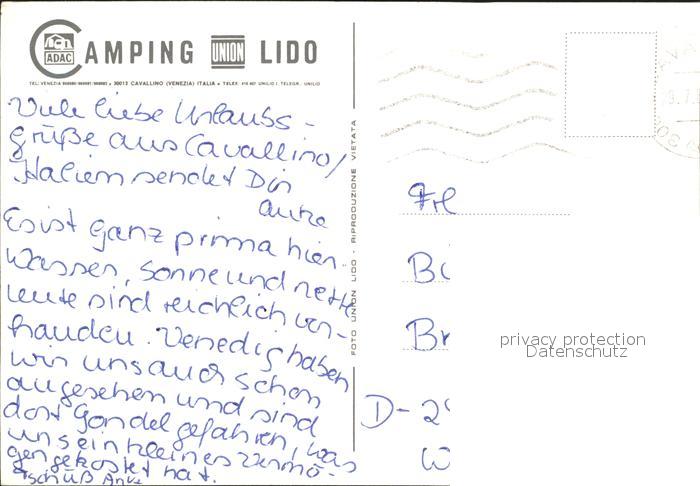 CAMPING UNION LIDO
ADAC
30013 CAVALLINO (VENEZIA) ITALIA
Viele liebe Urlaubs-
grüße aus Cavallino/
Italien sendet Dir
Anke
Es ist ganz prima hier.
Wasser, Sonne und nette
Leute sind reichlich vor-
handen. Venedig haben
wir uns auch schon
angesehen und sind
dort Gondel gefahren, was
uns ein kleines Vermö-
gen gekostet hat.
Tschüß Anke
FOTO UNION LIDO - RIPRODUZIONE VIETATA
Frl
D-2
W
privacy protection
Datenschutz